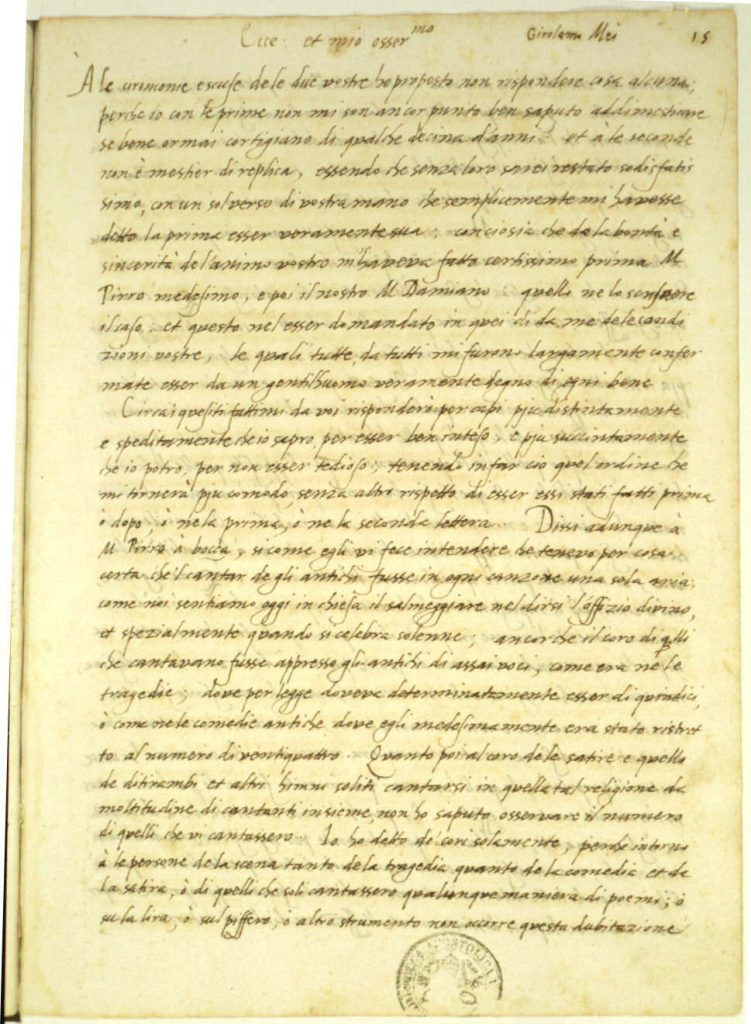 Ecce: et mio osser^mo
Girolamo Mei
15
A le cirimonie e scuse de le due vostre ho proposto non rispondere cosa alcuna;
perche io con le prime non mi son ancor punto ben saputo addimesticare
se bene ormai cortigiano di qualche decina d'anni: et à le seconde
non è mestier di replica, essendo che senza loro sarei restato sodisfatis
simo, con un sol verso di vostra mano che semplicemente mi havesse
detto la prima esser veramente sua; conciosia che de la bontà e
sincerità de l'animo vostro m'haveva fatto certissimo prima M
Pirro medesimo, e poi il nostro M Damiano: quelli ne lo
il caso: et questo nel esser domandato in quei dì da me dele condi
zioni vostre, le quali tutte, da tutti mi furono largamente confer
mate esser da un gentilhuomo veramente degno di ogni bene
Circa i quesiti fattimi da voi risponderò per capi più distintamente
e speditamente che io saprò, per esser ben inteso, e più succintamente
che io potrò, per non esser tedioso; tenendo in far ciò quel ordine che
mi tornerà più comodo, senza altro rispetto di esser essi stati fatti prima
ò dopo, ò ne la prima, ò ne la seconda lettera. Dissi adunque à
M Pirro à bocca, si come egli vi fece intendere che tenevo per cosa
certa che 'l cantar degli antichi fusse in ogni canzone una sola aria,
come noi sentiamo oggi in chiesa il salmeggiare nel dirsi l'offizio divino,
et spezialmente quando si celebra solenne; ancor che il coro di qlli
che cantavano fusse appresso gli antichi di assai voci, come era ne le
tragedie; dove per legge doveva determinatamente esser di quindici,
ò come ne le comedie antiche dove egli medesimamente era stato ristret
to al numero di ventiquattro. Quanto poi al coro de le satire e quelli
de ditirambi et altri hinni soliti cantarsi in quella tal religione da
moltitudine di cantanti insieme, non ho saputo osservare il numero
di quelli che vi cantassero. Io ho detto de' cori solamente, perche intorno
à le persone de la scena tanto de la tragedia quanto de la comedia et de
la satira, ò di quelli che soli cantassero qualunque maniera di poemi; ò
su la lira, ò sul piffero, ò altro strumento non occorre questa dubitazione